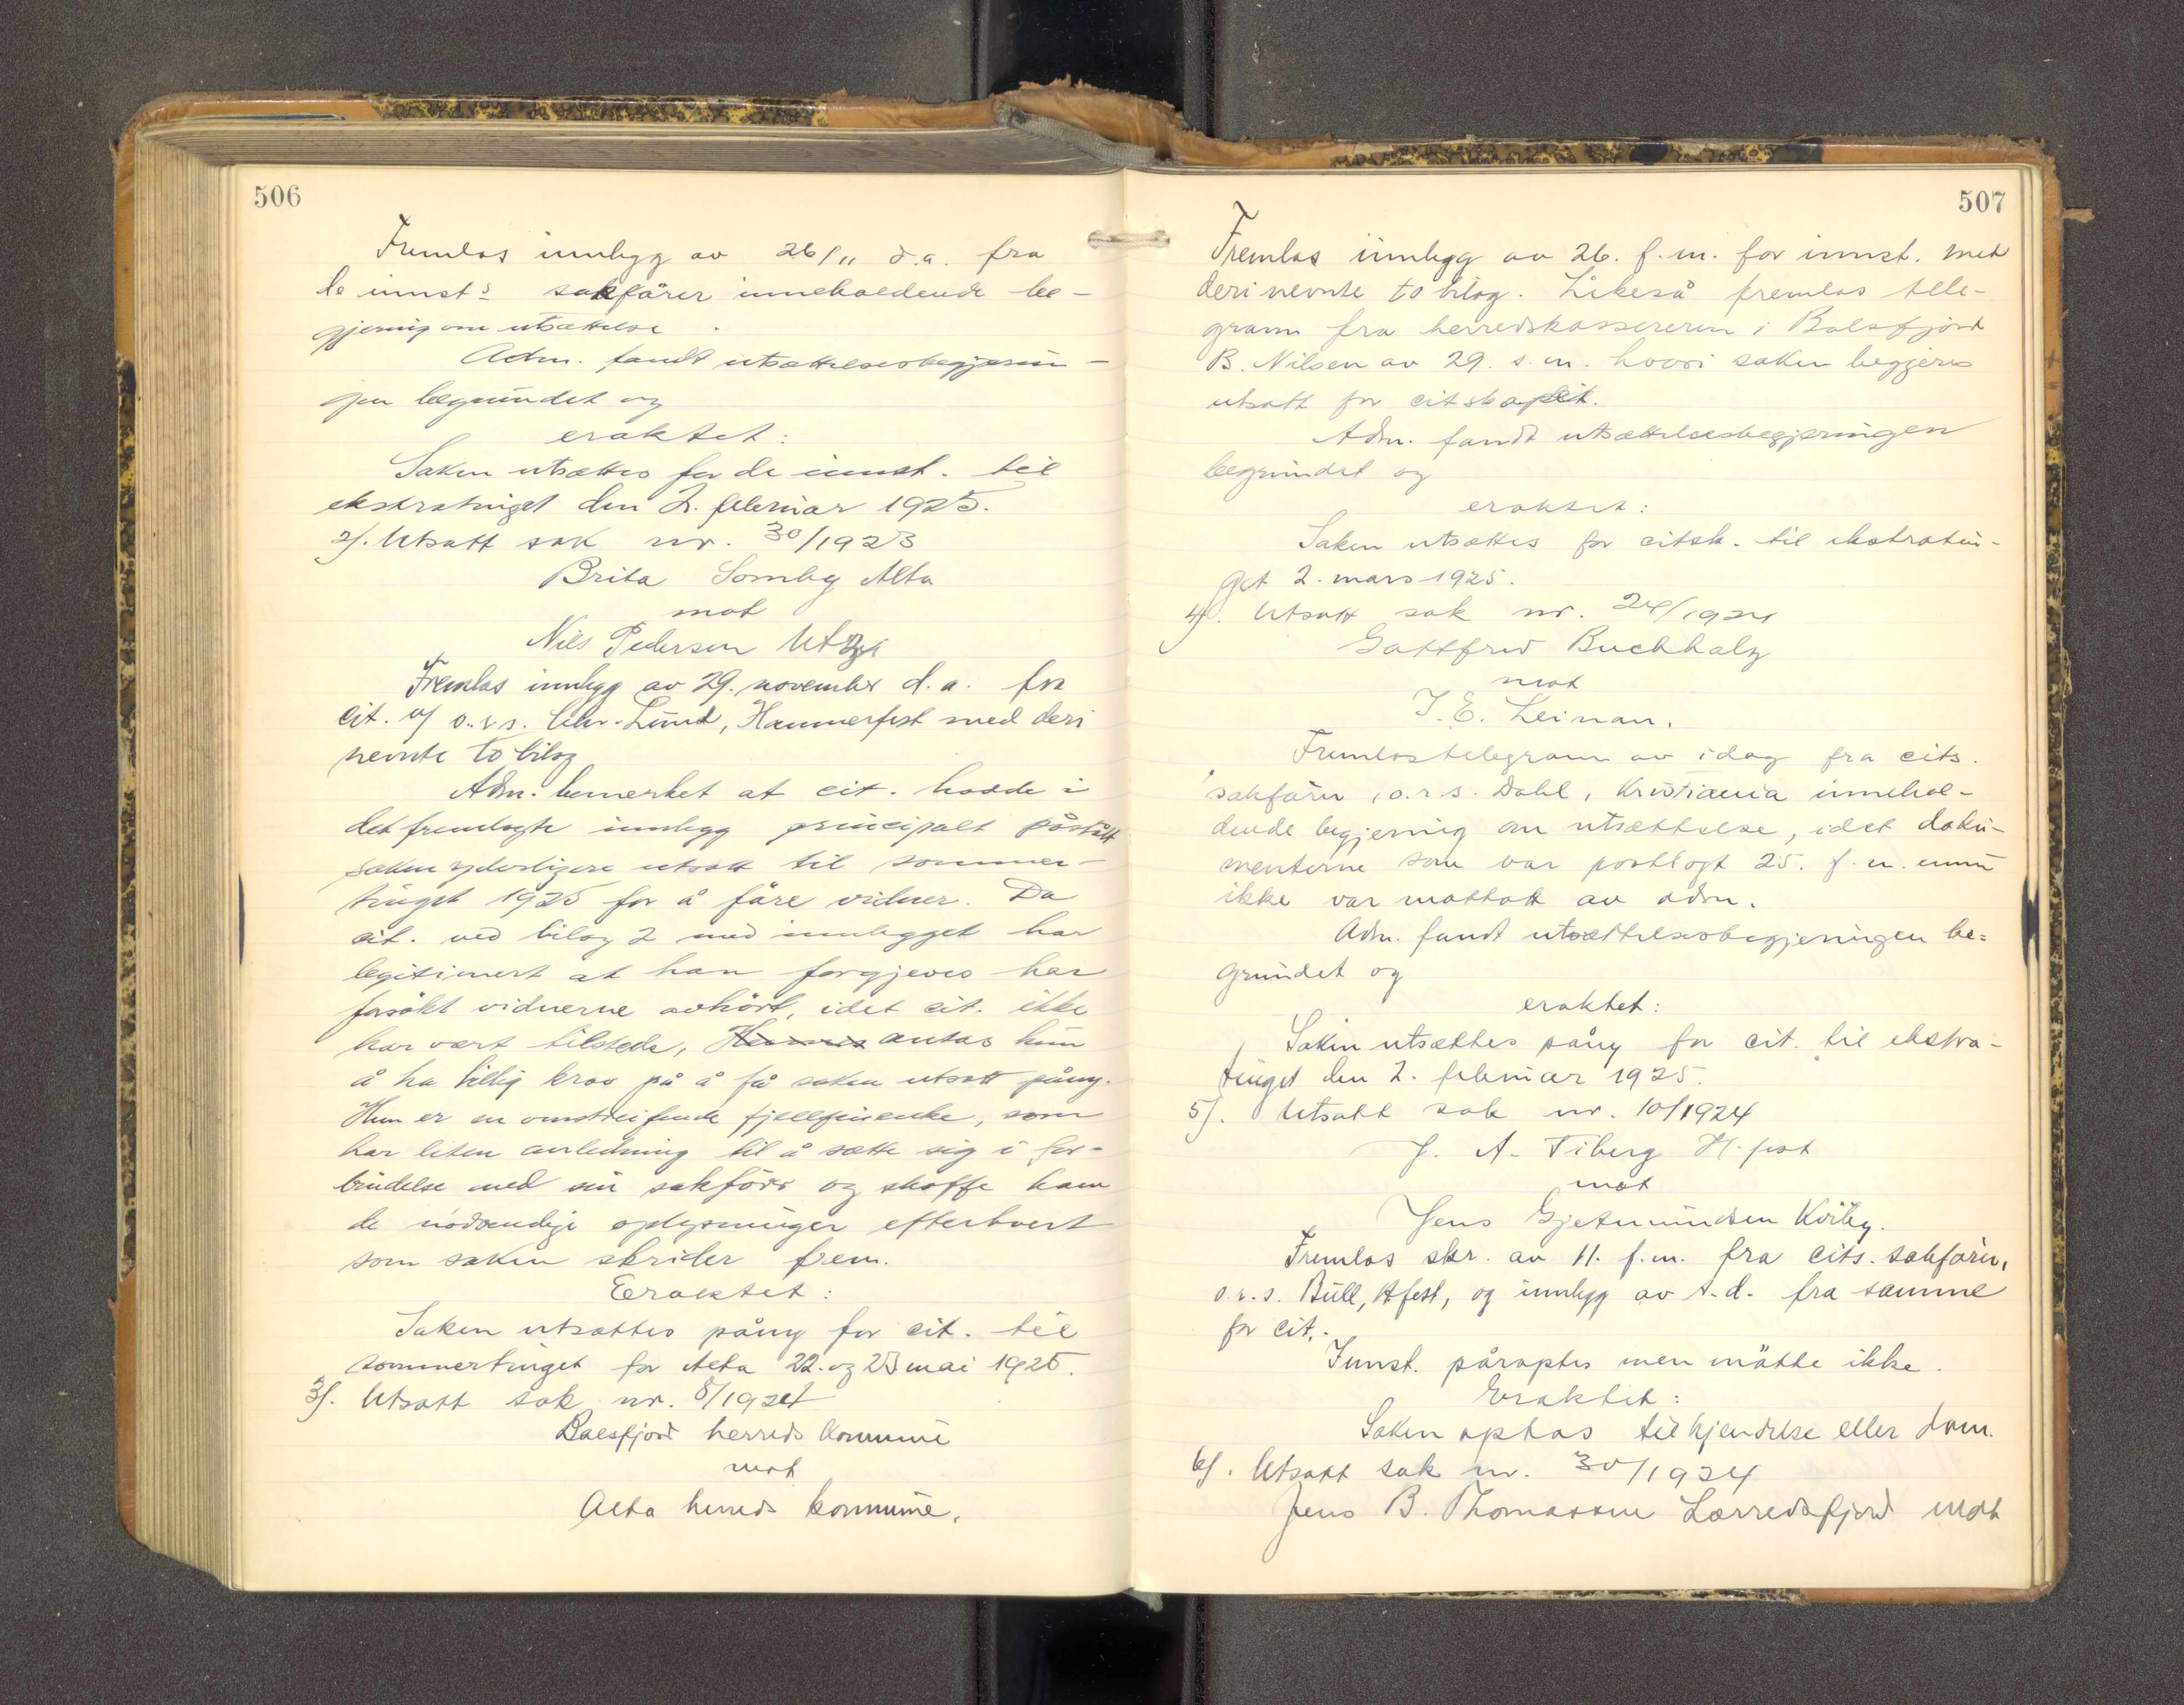 506
Fremlas innlegg av 26/11 d.a. fra
de innst.s sakfører inneholdende be-
gjering om utsættelse.
Adm. fandt utsættelsesbegjerin-
gen begrundet og
eraktet:
Saken utsættes for de innst. til
ekstratinget den 2. februar 1925.
2/. Utsatt sak nr. 30/1923
Brita Somby Alta
mot
Nils Pedersen Utzi
Fremlas innlegg av 29. november d.a. fra
cit. v/ o.r.s. Chr. Lund, Hammerfest med deri
nevnte to bilag
Adm. bemerket at cit. hadde i
det fremlagte innlegg principalt påstått
saken yderligere utsatt til sommer-
tinget 1925 for å føre vidner. Da
cit. ved bilag 2 med innlegget har
legitimert at han forgjeves har
forsøkt vidnerne avhørt, idet cit. ikke
har vært tilstede, antas hun
å ha billig krav på å få saken utsatt påny.
Hun er en omstreifende fjellfinenke, som
har liten anledning til å sætte sig i for-
bindelse med sin sakfører og skaffe ham
de nødvendige oplysninger efterhvert
som saken skrider frem.
Eraktet:
Saken utsættes påny for cit. til
sommertinget for Alta 22. og 23 mai 1925.
3/. Utsatt sak nr. 8/1924
Balsfjord herreds kommune
mot
Alta herreds kommune.
507
Fremlas innlegg av 26. f.m. for innst. med
deri nevnte to bilag. Likeså fremlas tele-
gram fra herredskassereren i Balsfjord
B. Nilsen av 29. s.m. hvori saken begjeres
utsatt for citskapet.
Adm. fandt utsættelsesbegjeringen
begrundet og
eraktet:
Saken utsættes for citsk. til ekstratin-
get 2. mars 1925.
4/. Utsatt sak nr. 24/1924
Gottfred Buchholz
mot
J. E. Leinan.
Fremlas telegram av idag fra cits.
sakfører, o.r.s. Dahl, Kristiania innehol-
dende begjering om utsættelse, idet doku-
menterne som var postlagt 25. f.m. ennu
ikke var mottatt av adm.
Adm. fandt utsættelsesbegjeringen be=
grundet og
eraktet:
Saken utsættes påny for cit. til ekstra-
tinget den 2. februar 1925.
5/. Utsatt sak nr. 10/1924
J. A. Tiberg H.fest
mot
Jens Gjetmundsen Kviby.
Fremlas skr. av 11. f.m. fra cits. sakfører,
o.r.s. Bull, Hfest, og innlegg av s.d. fra samme
for cit.
Innst. påroptes men møtte ikke.
Eraktet:
Saken optas til kjendelse eller dom.
6/. Utsatt sak nr. 30/1924
Jens B. Thomassen Lerresfjord mot